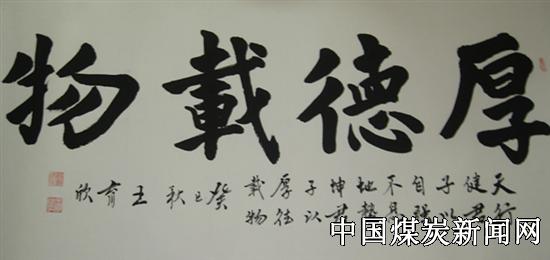 厚德載物
天行
健君
子以
自强
不息
地勢
坤君
子以
厚德
載物
癸巳
秋
王育欣
中国煤炭新闻网